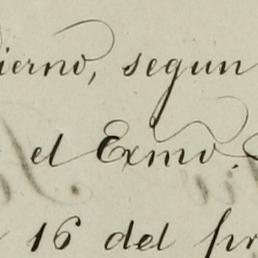 ierno, segun
el Exmo.
16 del pr